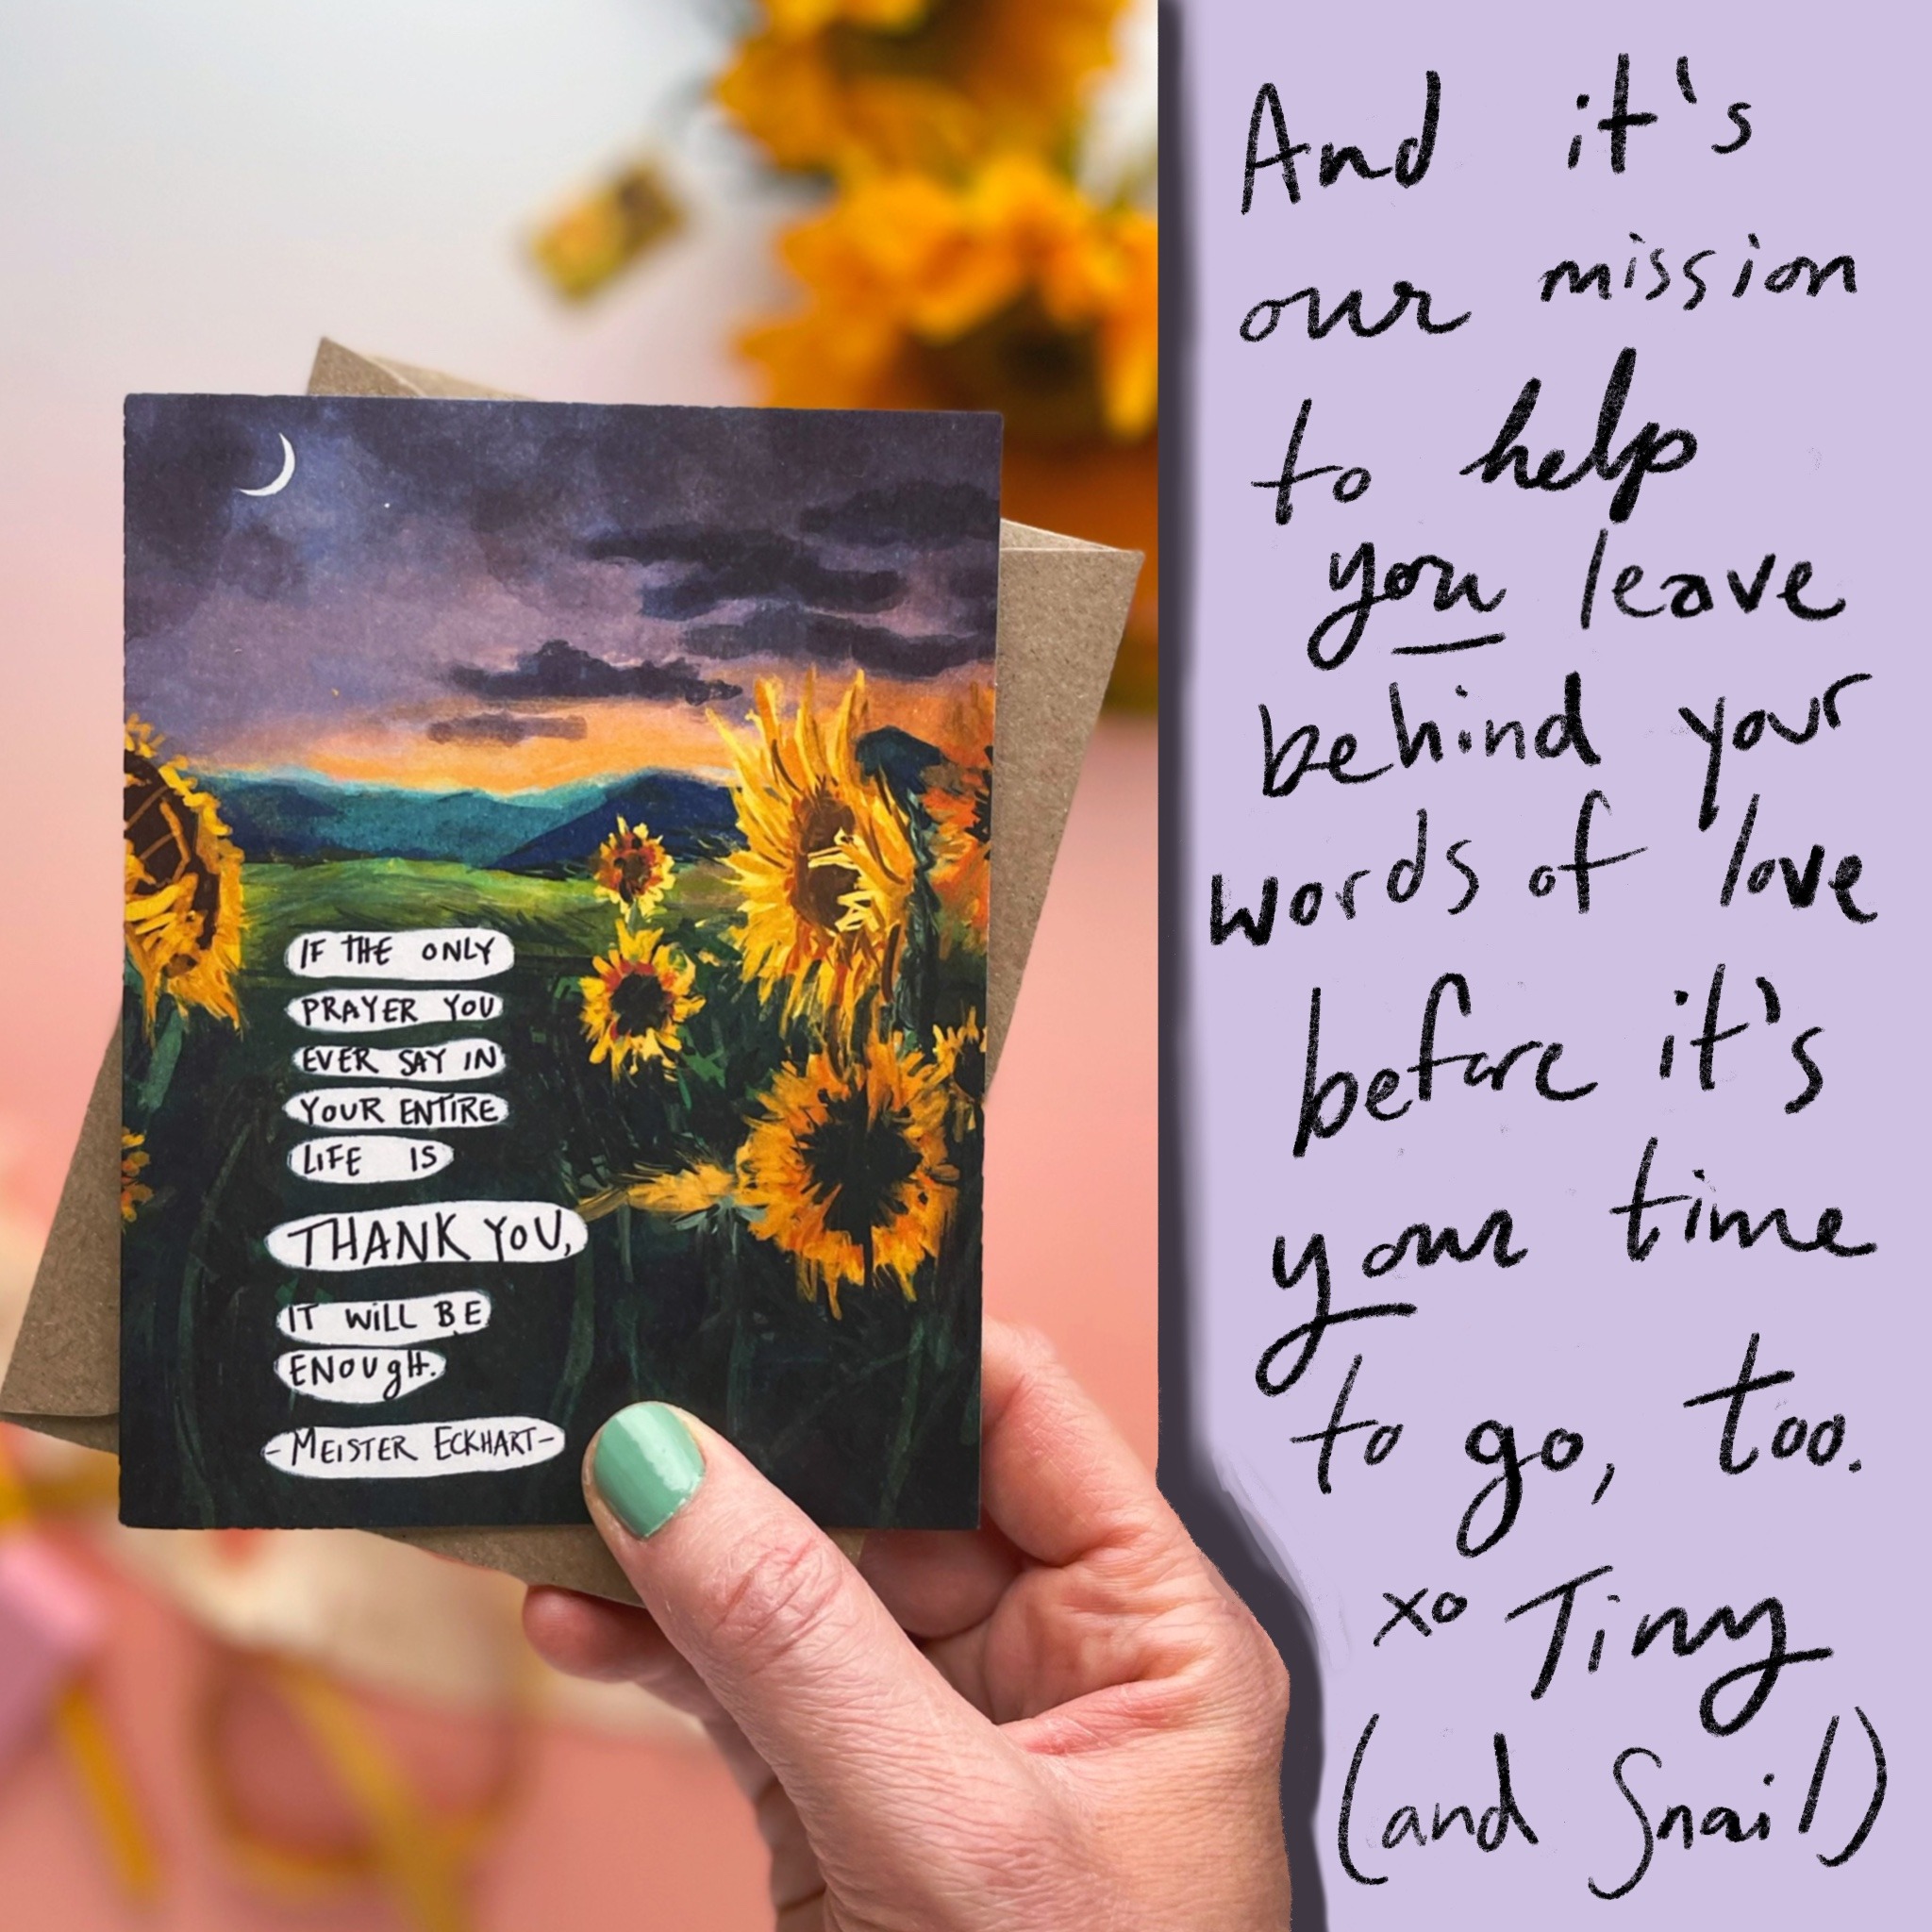 IF THE ONLY
PRAYER YOU
EVER SAY IN
YOUR ENTIRE
LIFE IS
THANK YOU,
IT WILL BE
ENOUGH.
- MEISTER ECKHART -
And it's
our mission
to help
you leave
behind your
words of love
before it's
your time
to go, too.
xo Tiny
(and Snail)